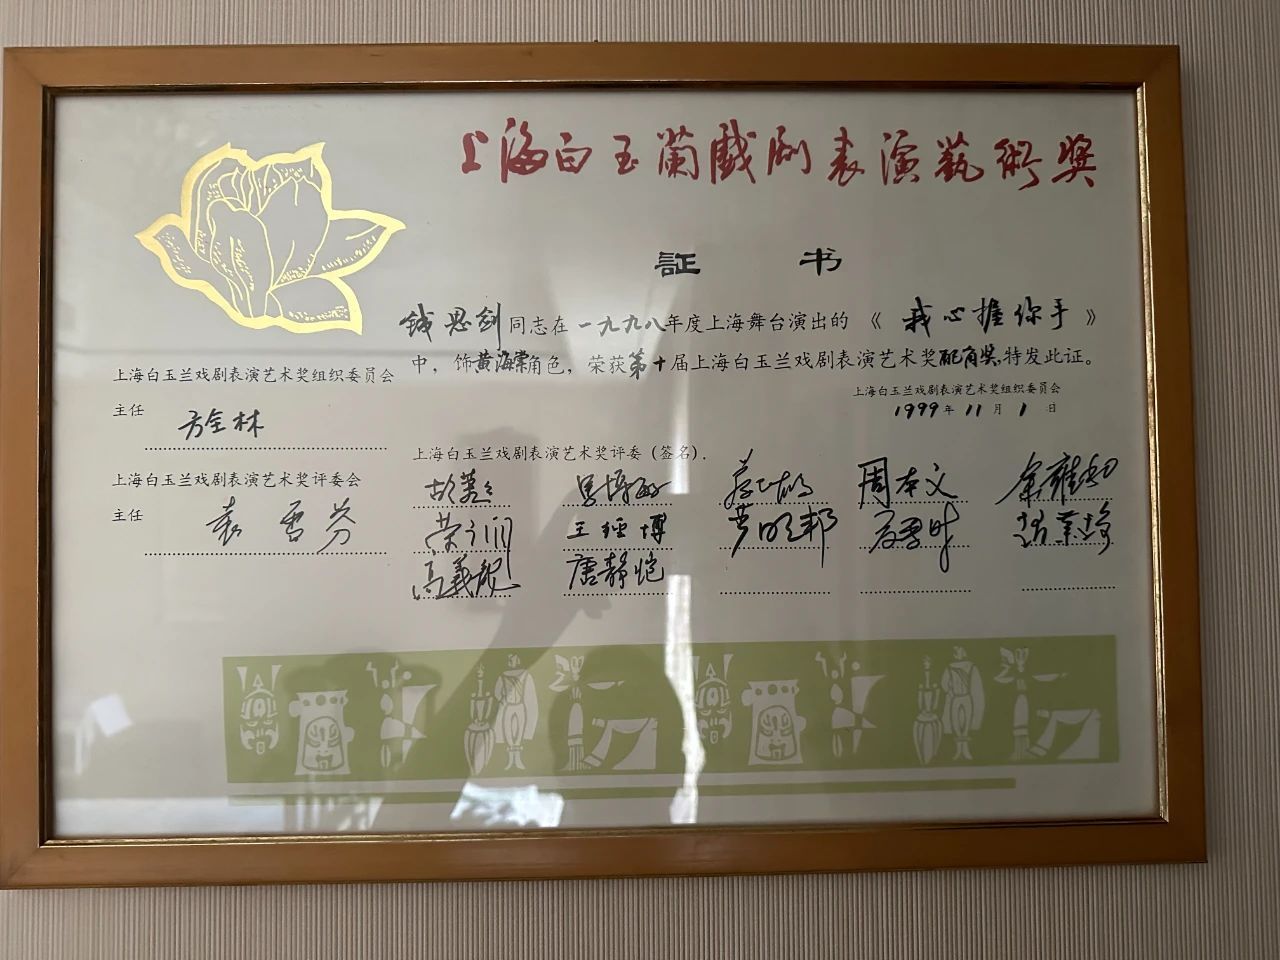 上海白玉蘭戲劇表演藝術獎
証书
钱思剑同志在一九九八年度上海舞台演出的《我心握你手》
中，饰黄海棠角色，荣获第十届上海白玉兰戏剧表演艺术奖配角奖,特发此证。
上海白玉兰戏剧表演艺术奖组织委员会
1999年11月1日
上海白玉兰戏剧表演艺术奖组织委员会
主任
方全林
上海白玉兰戏剧表演艺术奖评委会
主任
袁雪芬
上海白玉兰戏剧表演艺术奖评委（签名）.
周本义
王经博
高義龍
唐静恺